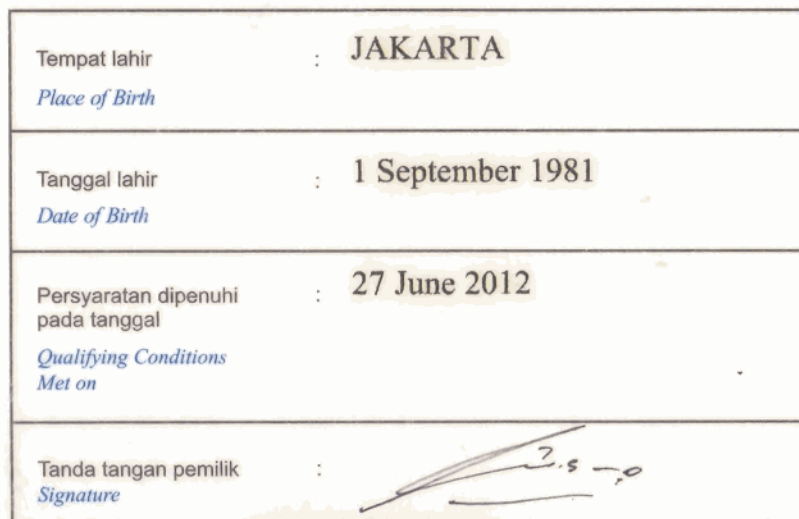 Tempat lahir : JAKARTA
Place of Birth
Tanggal lahir : 1 September 1981
Date of Birth
Persyaratan dipenuhi : 27 June 2012
pada tanggal
Qualifying Conditions
Met on
Tanda tangan pemilik :
Signature